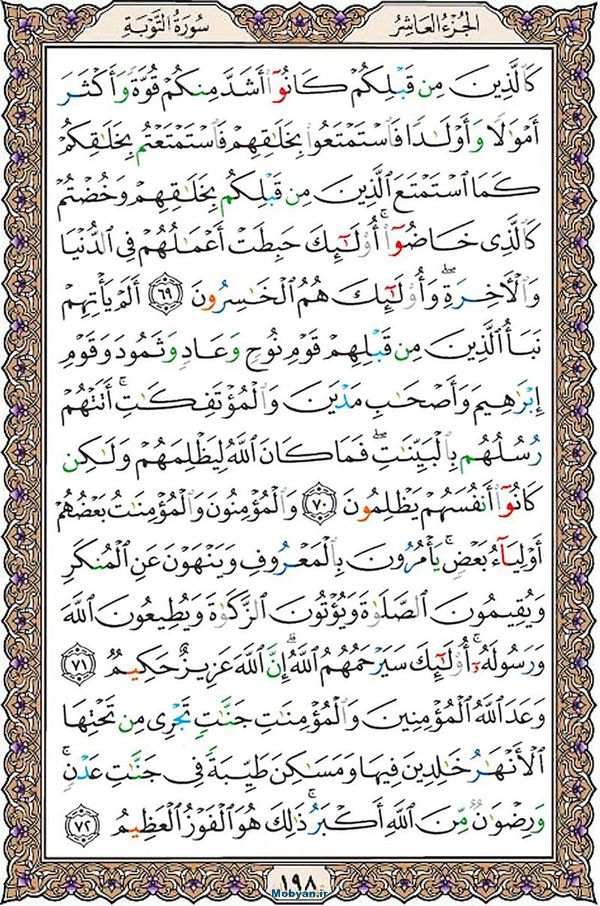 الجُزءُ العَاشِرُ سُورَةُ التَّوْبَةِ
كَٱلَّذِينَ مِن قَبۡلِكُمۡ كَانُوٓاْ أَشَدَّ مِنكُمۡ قُوَّةٗ وَأَكۡثَرَ
أَمۡوَٰلٗا وَأَوۡلَٰدٗا فَٱسۡتَمۡتَعُواْ بِخَلَٰقِهِمۡ فَٱسۡتَمۡتَعۡتُم بِخَلَٰقِكُمۡ
كَمَا ٱسۡتَمۡتَعَ ٱلَّذِينَ مِن قَبۡلِكُم بِخَلَٰقِهِمۡ وَخُضۡتُمۡ
كَٱلَّذِي خَاضُوٓاْۚ أُوْلَٰٓئِكَ حَبِطَتۡ أَعۡمَٰلُهُمۡ فِي ٱلدُّنۡيَا
وَٱلۡأٓخِرَةِۖ وَأُوْلَٰٓئِكَ هُمُ ٱلۡخَٰسِرُونَ ٦٩ أَلَمۡ يَأۡتِهِمۡ
نَبَأُ ٱلَّذِينَ مِن قَبۡلِهِمۡ قَوۡمِ نُوحٖ وَعَادٖ وَثَمُودَ وَقَوۡمِ
إِبۡرَٰهِيمَ وَأَصۡحَٰبِ مَدۡيَنَ وَٱلۡمُؤۡتَفِكَٰتِۚ أَتَتۡهُمۡ
رُسُلُهُم بِٱلۡبَيِّنَٰتِۖ فَمَا كَانَ ٱللَّهُ لِيَظۡلِمَهُمۡ وَلَٰكِن
كَانُوٓاْ أَنفُسَهُمۡ يَظۡلِمُونَ ٧٠ وَٱلۡمُؤۡمِنُونَ وَٱلۡمُؤۡمِنَٰتُ بَعۡضُهُمۡ
أَوۡلِيَآءُ بَعۡضٖۚ يَأۡمُرُونَ بِٱلۡمَعۡرُوفِ وَيَنۡهَوۡنَ عَنِ ٱلۡمُنكَرِ
وَيُقِيمُونَ ٱلصَّلَوٰةَ وَيُؤۡتُونَ ٱلزَّكَوٰةَ وَيُطِيعُونَ ٱللَّهَ
وَرَسُولَهُۥٓۚ أُوْلَٰٓئِكَ سَيَرۡحَمُهُمُ ٱللَّهُۗ إِنَّ ٱللَّهَ عَزِيزٌ حَكِيمٞ ٧١
وَعَدَ ٱللَّهُ ٱلۡمُؤۡمِنِينَ وَٱلۡمُؤۡمِنَٰتِ جَنَّٰتٖ تَجۡرِي مِن تَحۡتِهَا
ٱلۡأَنۡهَٰرُ خَٰلِدِينَ فِيهَا وَمَسَٰكِنَ طَيِّبَةٗ فِي جَنَّٰتِ عَدۡنٖۚ
وَرِضۡوَٰنٞ مِّنَ ٱللَّهِ أَكۡبَرُۚ ذَٰلِكَ هُوَ ٱلۡفَوۡزُ ٱلۡعَظِيمُ ٧٢
١٩٨
Mobyan.ir